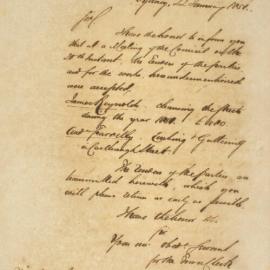 Sydney, 22 January 1850.
Sir,
I have the honor to inform you
that at a Meeting of the Council on the
20th Instant the Tenders of the parties
and for the works hereunder mentioned
were accepted,
James Reynolds, cleansing the Streets
during the year
Curbing & Guttering
in Castlereagh Street.
The Tenders of the parties are
transmitted herewith, which you
will please return as early as possible
I have the honor &c.
Sir
Your most obedt Servant
for the Town Clerk